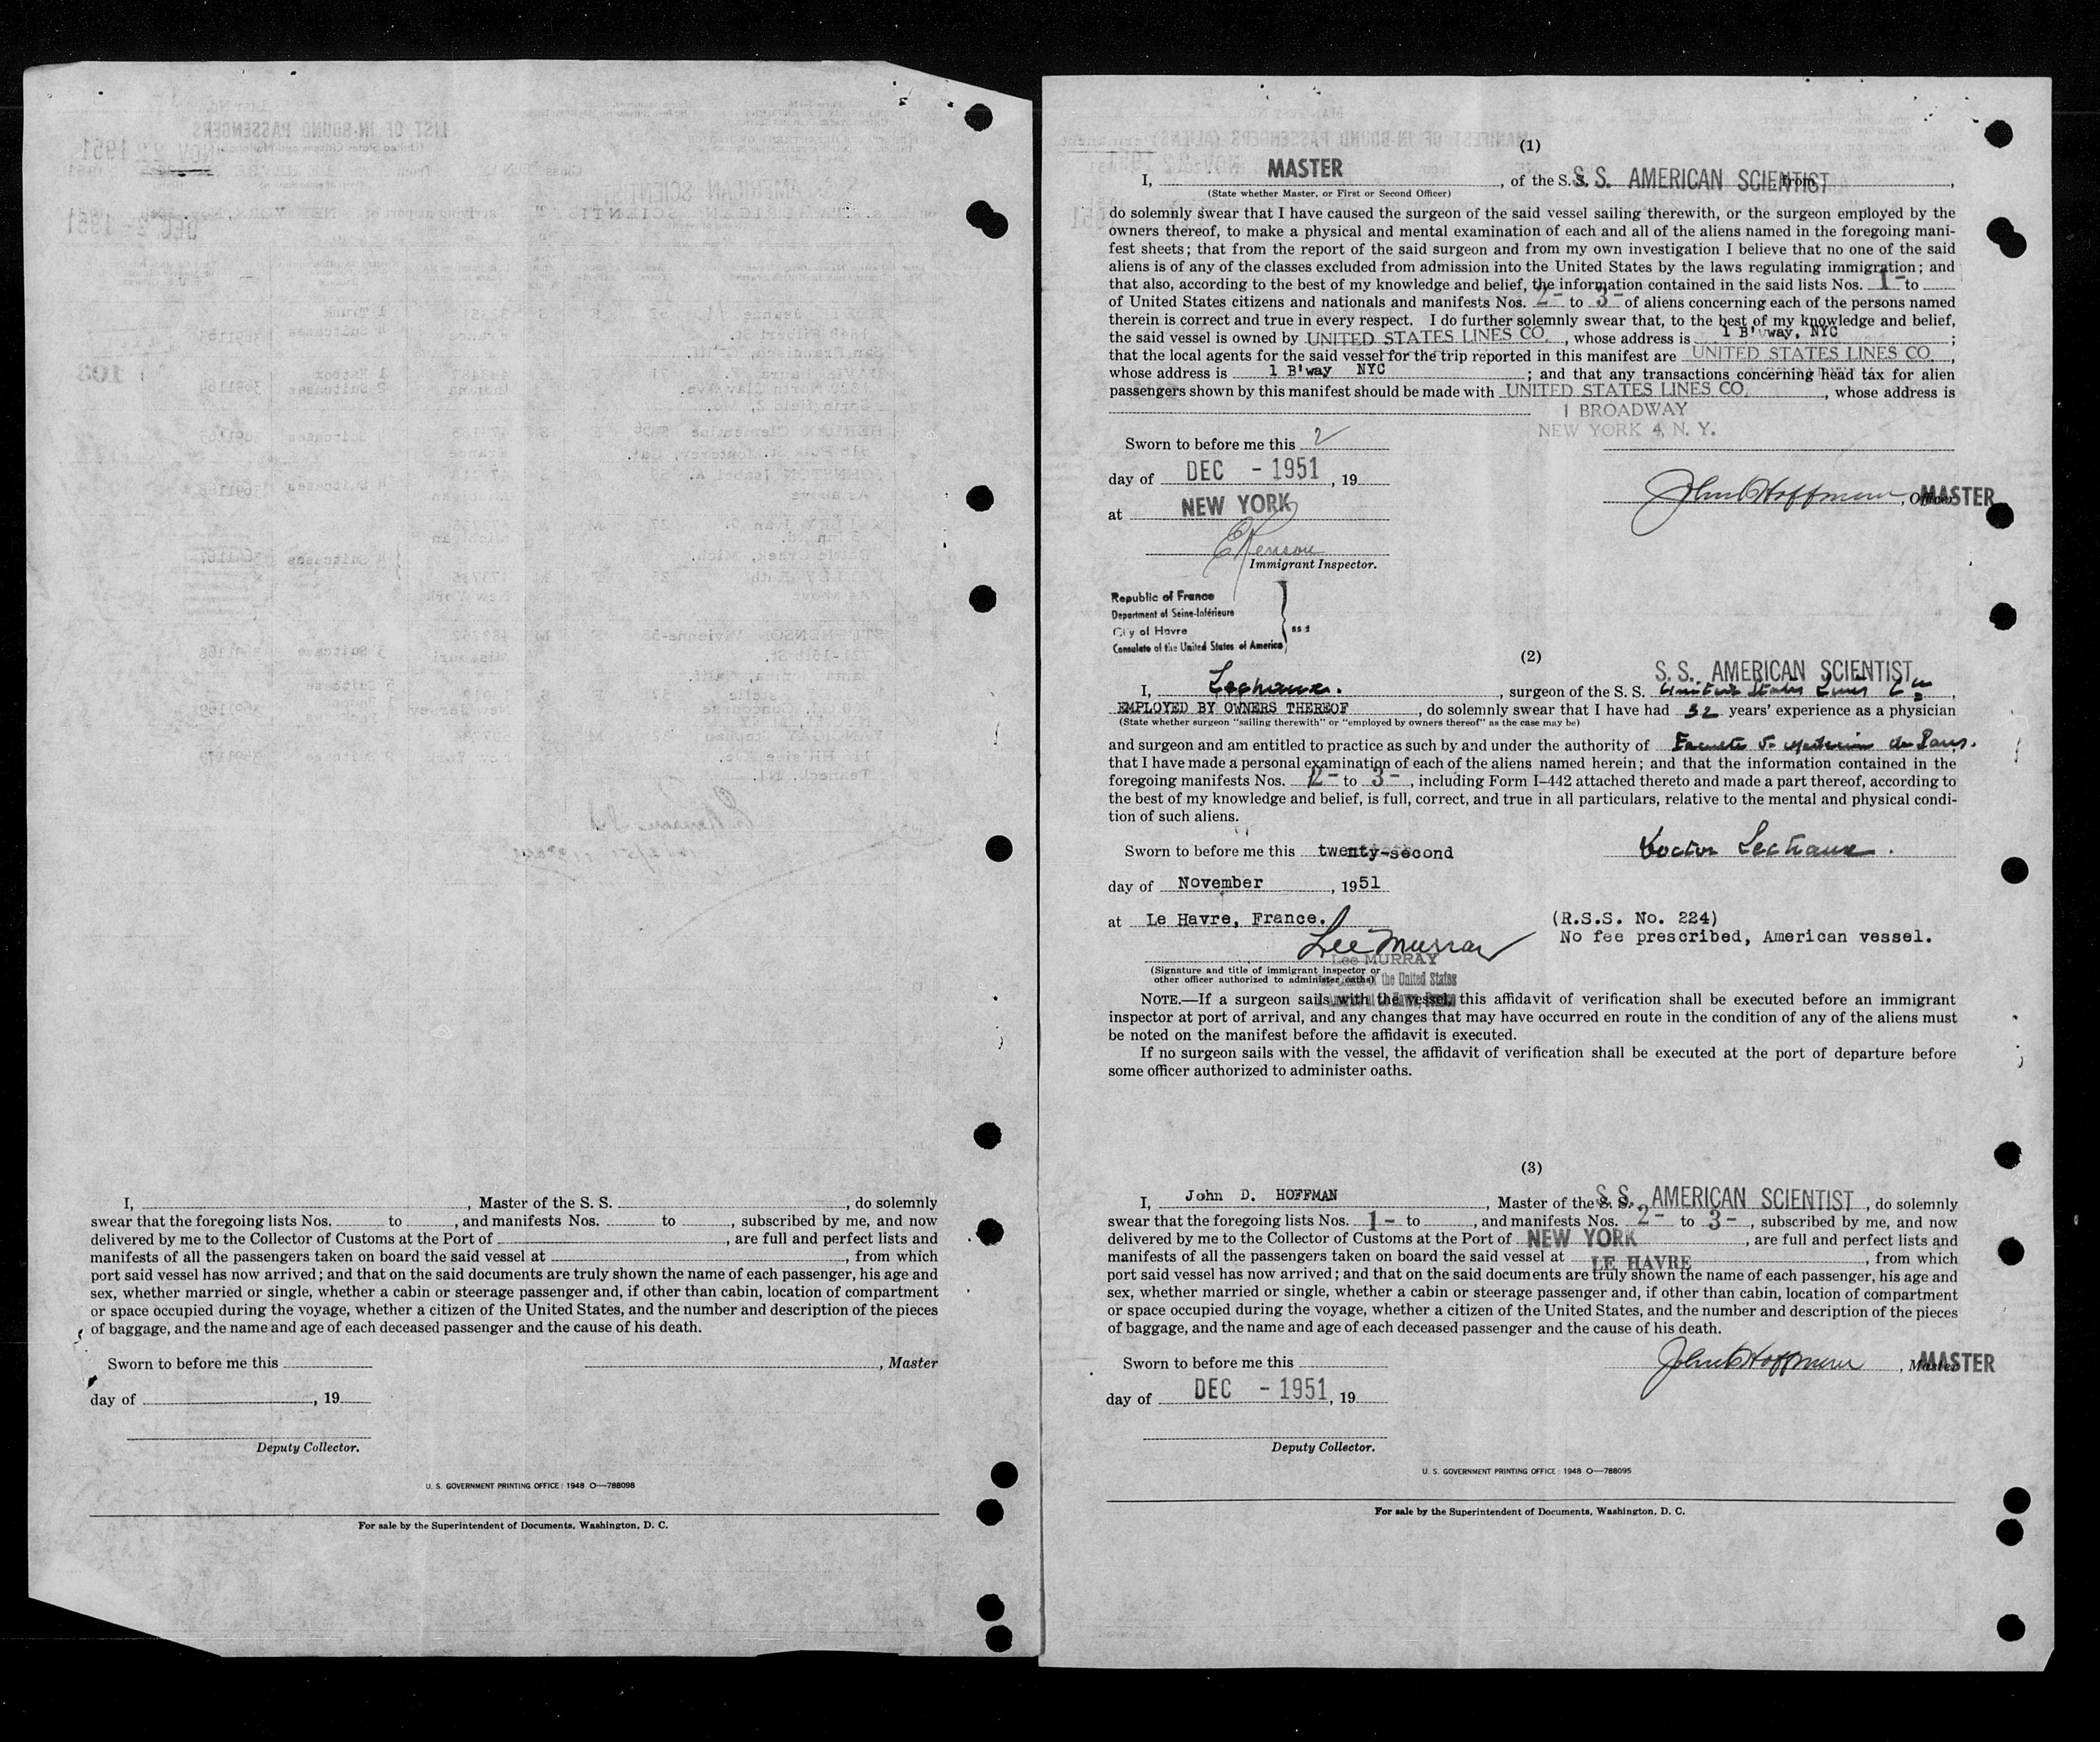 I, , Master of the S. S. , do solemnly
swear that the foregoing lists Nos. to , and manifests Nos. to , subscribed by me, and now
delivered by me to the Collector of Customs at the Port of , are full and perfect lists and
manifests of all the passengers taken on board the said vessel at , from which
port said vessel has now arrived; and that on the said documents are truly shown the name of each passenger, his age and
sex, whether married or single, whether a cabin or steerage passenger and, if other than cabin, location of compartment
or space occupied during the voyage, whether a citizen of the United States, and the number and description of the pieces
of baggage, and the name and age of each deceased passenger and the cause of his death.
Sworn to before me this , Master
day of , 19
Deputy Collector.
U. S. GOVERNMENT PRINTING OFFICE: 1948 O—788098
For sale by the Superintendent of Documents, Washington, D. C.
(1)
I, MASTER , of the S. S. S. S. AMERICAN SCIENTIST, from ,
(State whether Master, or First or Second Officer)
do solemnly swear that I have caused the surgeon of the said vessel sailing therewith, or the surgeon employed by the
owners thereof, to make a physical and mental examination of each and all of the aliens named in the foregoing mani-
fest sheets; that from the report of the said surgeon and from my own investigation I believe that no one of the said
aliens is of any of the classes excluded from admission into the United States by the laws regulating immigration; and
that also, according to the best of my knowledge and belief, the information contained in the said lists Nos. 1- to
of United States citizens and nationals and manifests Nos. 2- to 3- of aliens concerning each of the persons named
therein is correct and true in every respect. I do further solemnly swear that, to the best of my knowledge and belief,
the said vessel is owned by UNITED STATES LINES CO. , whose address is 1 B'way, NYC ;
that the local agents for the said vessel for the trip reported in this manifest are UNITED STATES LINES CO. ,
whose address is 1 B'way NYC ; and that any transactions concerning head tax for alien
passengers shown by this manifest should be made with UNITED STATES LINES CO. , whose address is
1 BROADWAY
NEW YORK 4, N. Y.
Sworn to before me this 2
day of DEC - 1951 , 19
John D Hoffman , Officer MASTER
at NEW YORK
Immigrant Inspector.
Republic of France
Department of Seine-Inférieure
City of Havre
Consulate of the United States of America
} ss:
(2)
S. S. AMERICAN SCIENTIST
I, Lechaux. , surgeon of the S. S. United States Lines Co ,
EMPLOYED BY OWNERS THEREOF , do solemnly swear that I have had 32 years' experience as a physician
(State whether surgeon "sailing therewith" or "employed by owners thereof" as the case may be)
and surgeon and am entitled to practice as such by and under the authority of de Paris.
that I have made a personal examination of each of the aliens named herein; and that the information contained in the
foregoing manifests Nos. 2- to 3- , including Form I-442 attached thereto and made a part thereof, according to
the best of my knowledge and belief, is full, correct, and true in all particulars, relative to the mental and physical condi-
tion of such aliens.
Sworn to before me this twenty-second
Doctor Lechaux.
day of November , 1951
at Le Havre, France.
(R.S.S. No. 224)
No fee prescribed, American vessel.
Lee Murray
Lee MURRAY
(Signature and title of immigrant inspector or
other officer authorized to administer oaths) of the United States
NOTE.—If a surgeon sails with the vessel, this affidavit of verification shall be executed before an immigrant
inspector at port of arrival, and any changes that may have occurred en route in the condition of any of the aliens must
be noted on the manifest before the affidavit is executed.
If no surgeon sails with the vessel, the affidavit of verification shall be executed at the port of departure before
some officer authorized to administer oaths.
(3)
I, John D. HOFFMAN , Master of the S. S. S. S. AMERICAN SCIENTIST , do solemnly
swear that the foregoing lists Nos. 1- to , and manifests Nos. 2- to 3- , subscribed by me, and now
delivered by me to the Collector of Customs at the Port of NEW YORK , are full and perfect lists and
manifests of all the passengers taken on board the said vessel at LE HAVRE , from which
port said vessel has now arrived; and that on the said documents are truly shown the name of each passenger, his age and
sex, whether married or single, whether a cabin or steerage passenger and, if other than cabin, location of compartment
or space occupied during the voyage, whether a citizen of the United States, and the number and description of the pieces
of baggage, and the name and age of each deceased passenger and the cause of his death.
Sworn to before me this John D Hoffman , Master MASTER
day of DEC - 1951 , 19
Deputy Collector.
U. S. GOVERNMENT PRINTING OFFICE: 1948 O—788095
For sale by the Superintendent of Documents, Washington, D. C.